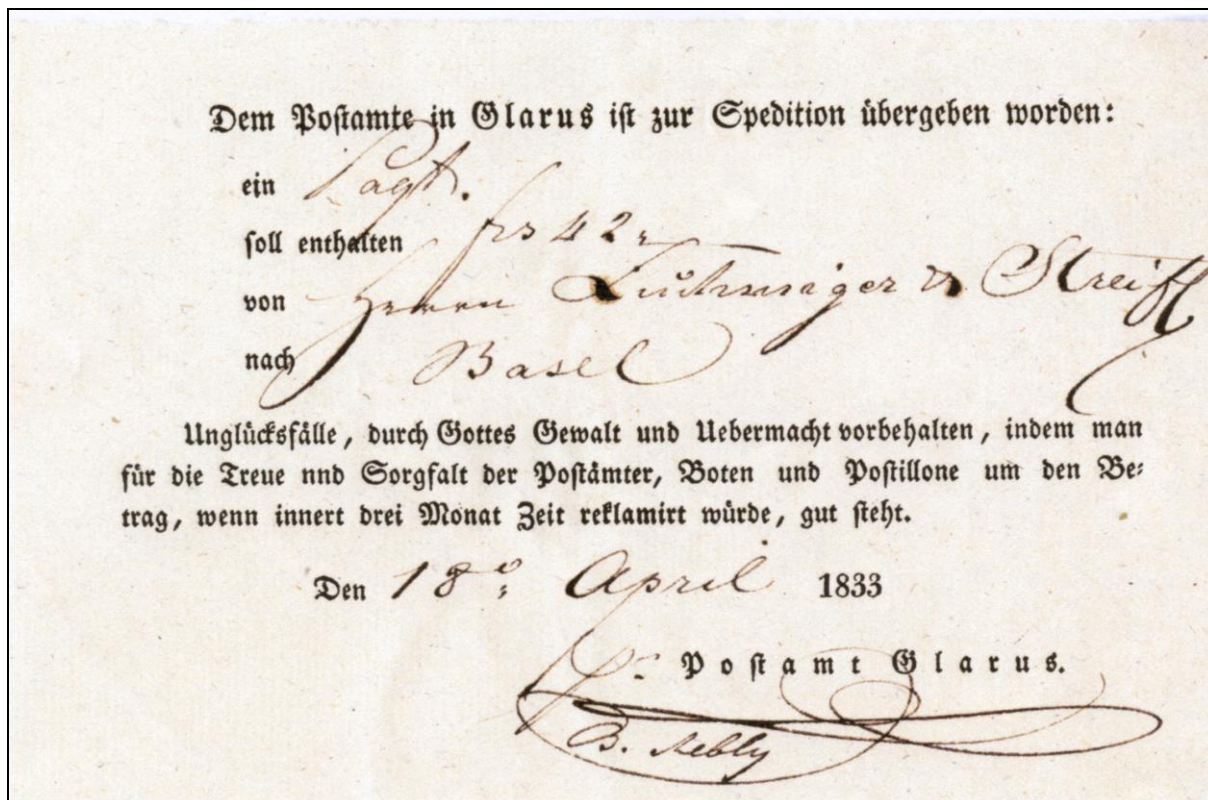 Dem Postamte in Glarus ist zur Spedition übergeben worden:
ein Pagt.
soll enthalten frs 42
von Herrn & Streiff
nach Basel
Unglücksfälle, durch Gottes Gewalt und Uebermacht vorbehalten, indem man
für die Treue nnd Sorgfalt der Postämter, Boten und Postillone um den Be-
trag, wenn innert drei Monat Zeit reklamirt würde, gut steht.
Den 18 April 1833
Postamt Glarus.
B. Aebly